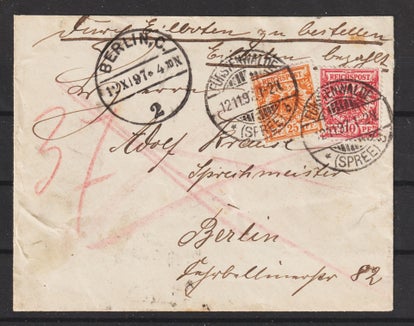 durch Eilboten zu bestellen
Eilboten bezahlt
BERLIN, C.
12/XI 97 4
2
FÜRSTENWALDE
12 11 97
(SPREE)
25
REICHSPOST
FÜRSTENWALDE
(SPREE)
37
Adolf Krause
Sprechmeister
Berlin
Fehrbellinerstr 82